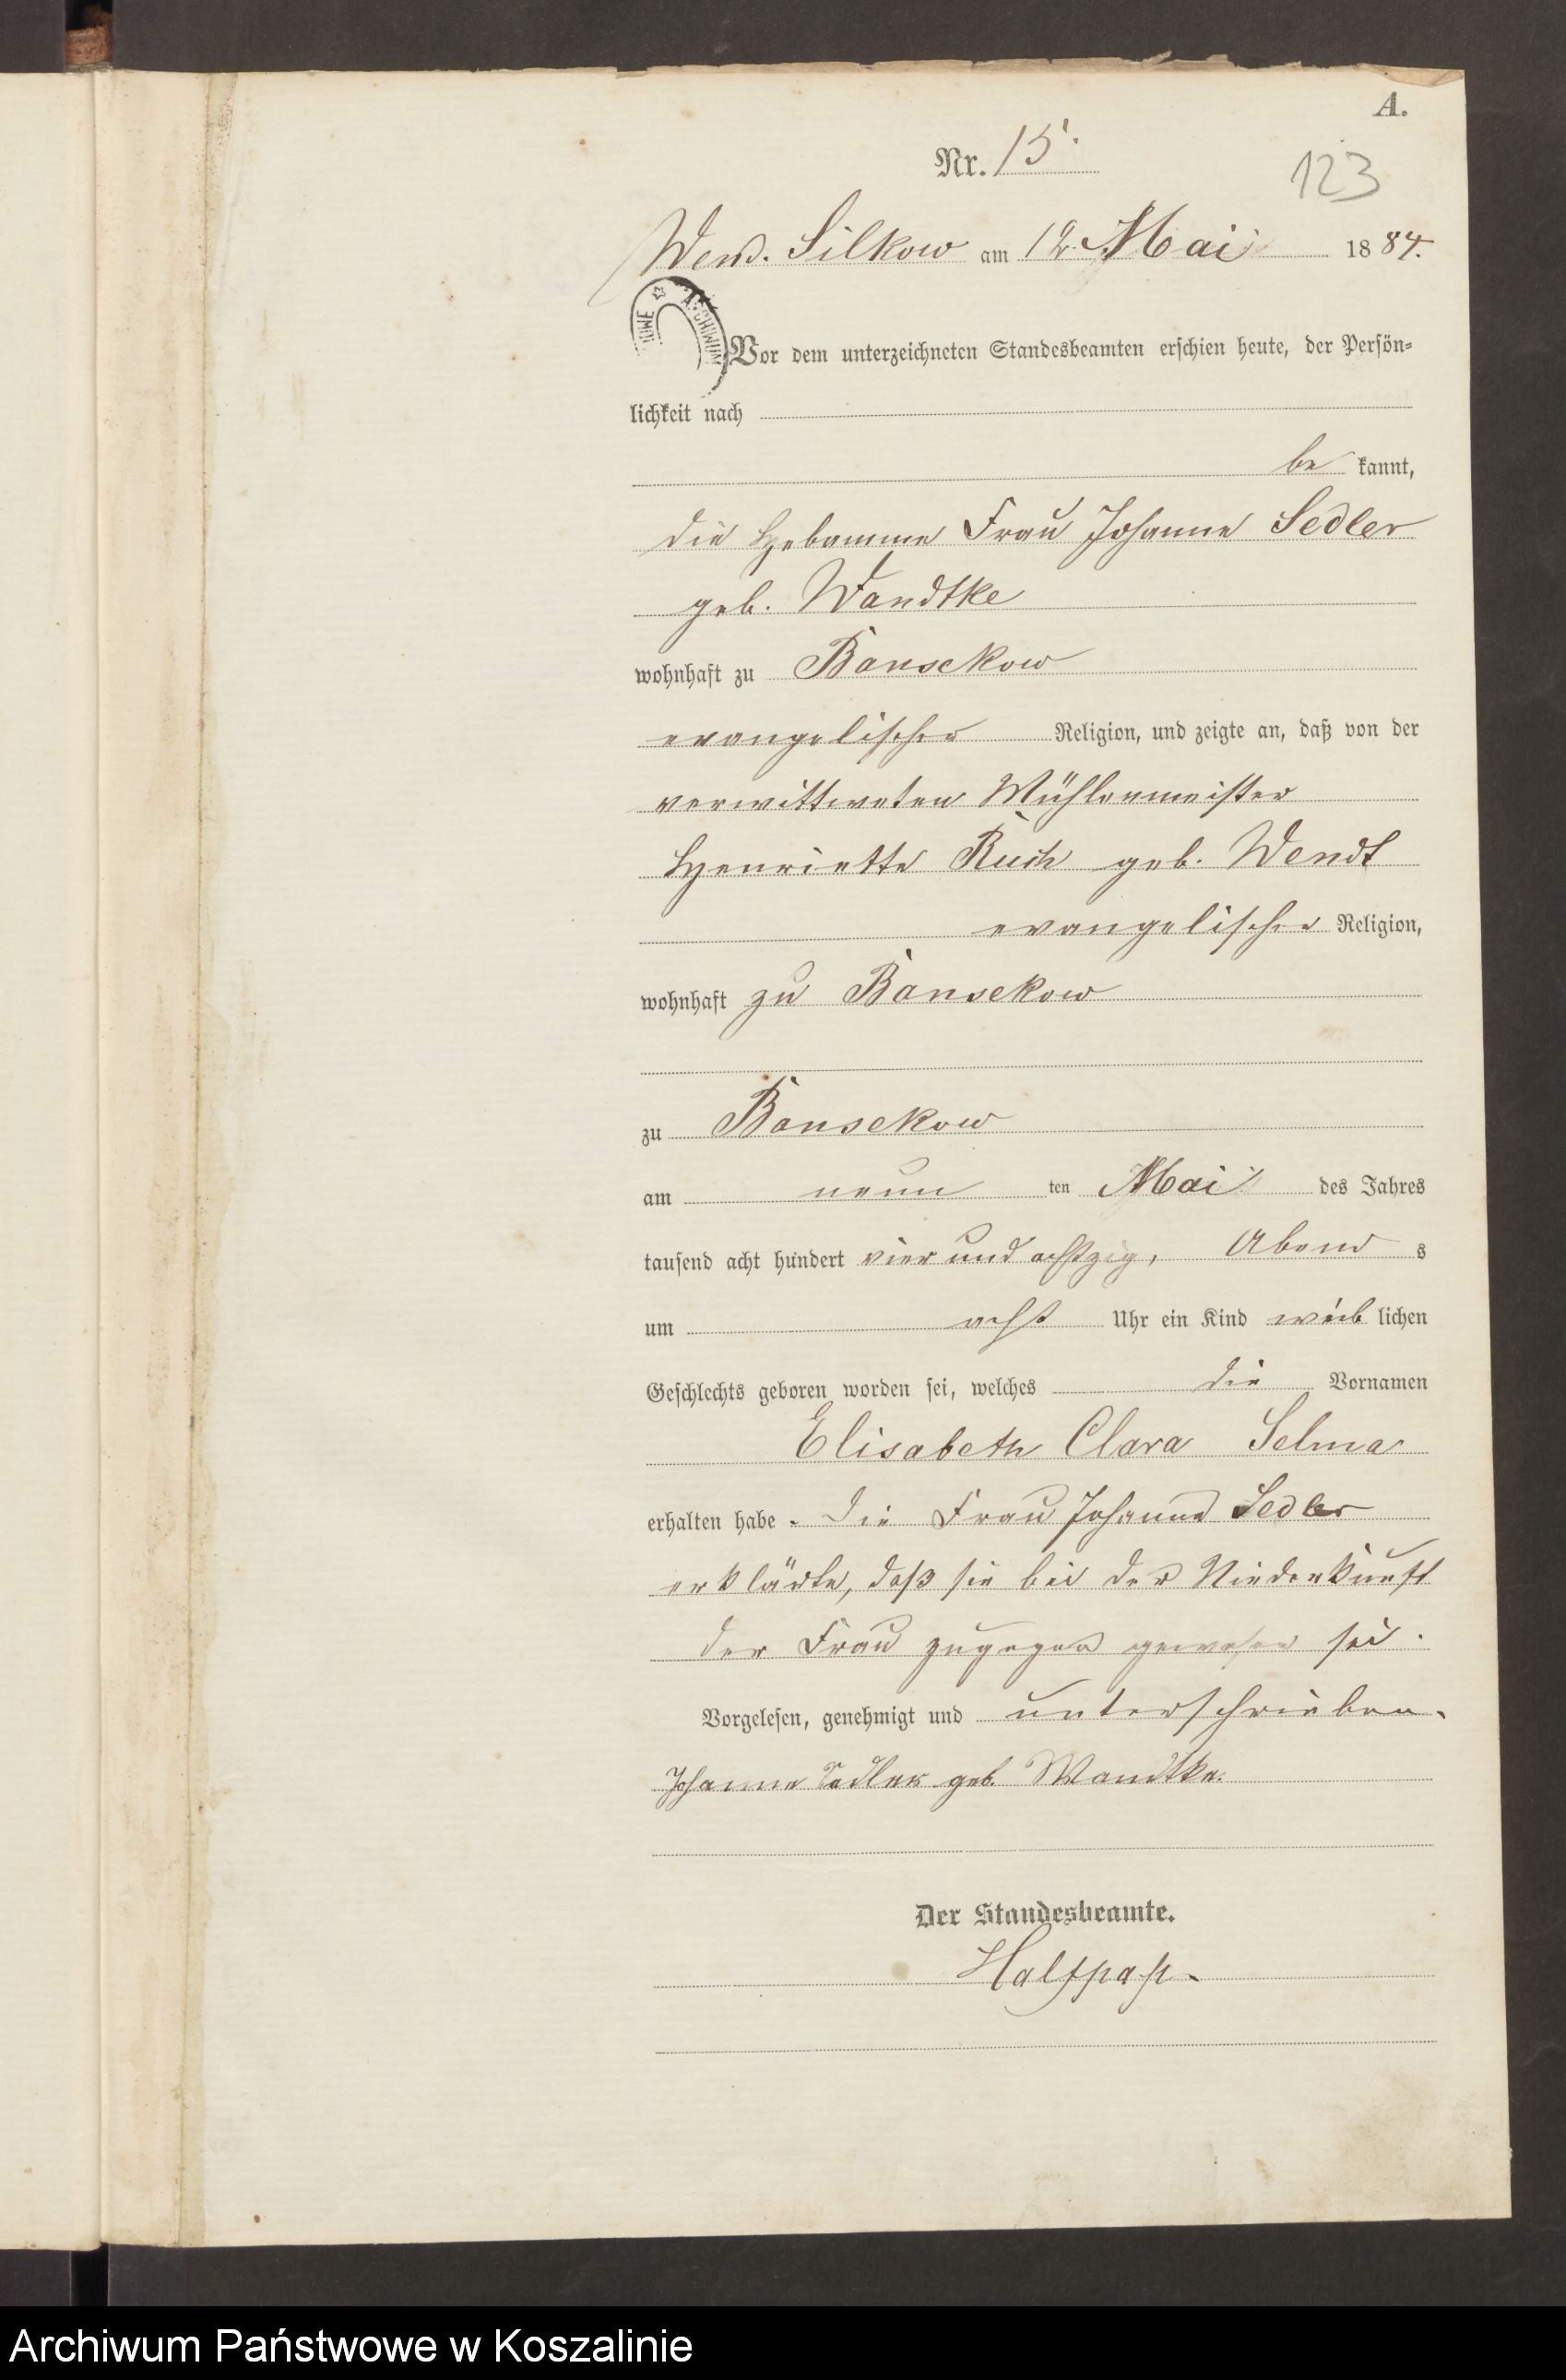 A.
Nr. 15.
123
Wend. Silkow am 12. Mai 1884.
ARCHIWUM
Vor dem unterzeichneten Standesbeamten erschien heute, der Persön-
lichkeit nach
be kannt,
die Hebamme Frau Johanne Sedler
geb. Wandtke
wohnhaft zu Bansekow
evangelischer Religion, und zeigte an, daß von der
verwittweten Mühlenmeister
Henriette Ruch geb. Wendt
evangelischer Religion,
wohnhaft zu Bansekow
zu Bansekow
am neun ten Mai des Jahres
tausend acht hundert vier und achtzig, Abend s
um acht Uhr ein Kind weib lichen
Geschlechts geboren worden sei, welches die Vornamen
Elisabeth Clara Selma
erhalten habe. Die Frau Johanne Sedler
erklärte, daß sie bei der Niederkunft
der Frau zugegen gewesen sei.
Vorgelesen, genehmigt und unterschrieben.
Johanne Sedler geb. Wandtke.
Der Standesbeamte.
Halfpap.
Archiwum Państwowe w Koszalinie